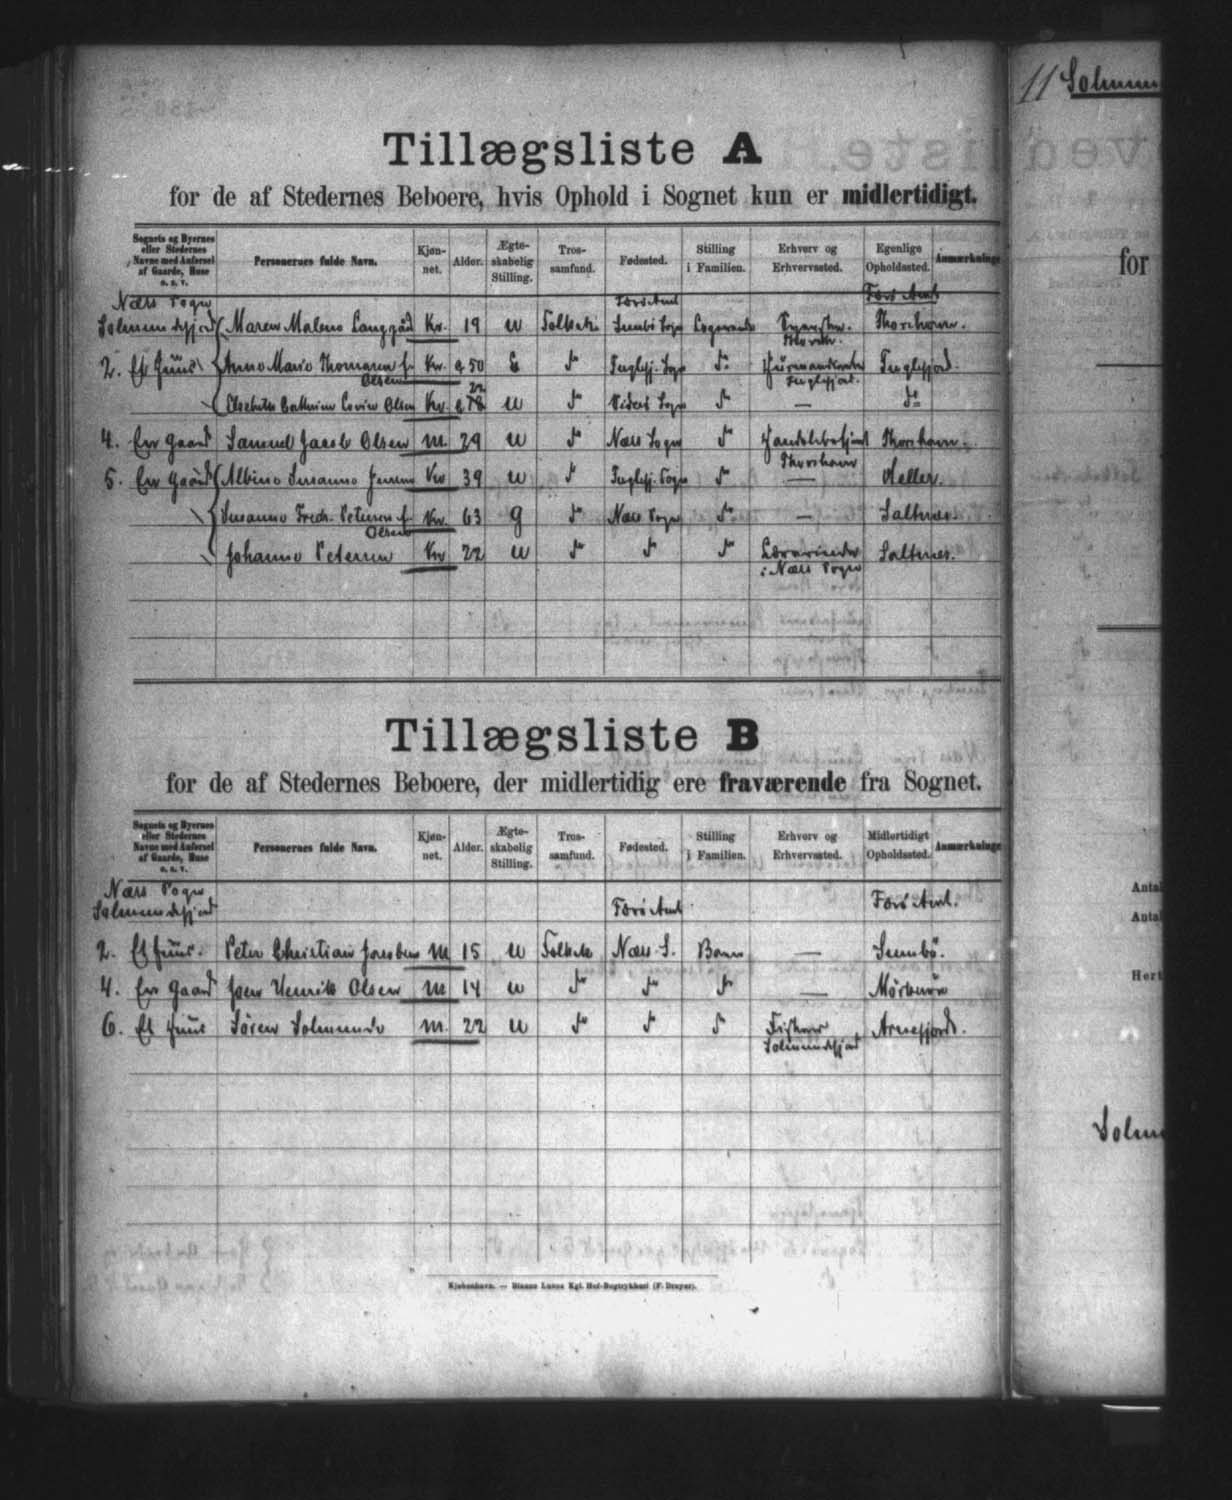 11 Solmun
Tillægsliste A
for de af Stedernes Beboere, hvis Ophold i Sognet kun er midlertidigt.
for
Sognets og Byernes eller Stedernes Navne med Anførsel af Gaarde, Huse o. s. v. Personernes fulde Navn. Kjøn-net. Alder. Ægte-skabelig Stilling. Tros-samfund. Fødested. Stilling i Familien. Erhverv og Erhvervssted. Egenlige Opholdssted. Anmærkninge
Næs Sogn Færø Amt Færø Amt
Solmundefjord Maren Malene Kv. 19 u Folkek. Sumbø Sogn Logerende Thorshavn.
2. Et Huus Anne Marie Thomasen f. Olsen Kv. 50 E do Fuglefj. Sogn do Fuglefjord Fuglefjord.
Elsebeth Cathrine Olsen Kv. 22 u do Sogn do — do
4. En Gaard Samuel Jacob Olsen M. 29 u do Næs Sogn do Thorshavn Thorshavn.
5. En Gaard Albine Susanne Kv 39 u do Fuglefj. Sogn do — Heller.
Susanne Fredr. Petersen f. Olsen Kv. 63 g do Næs Sogn do — Saltnæs.
Johanne Petersen Kv 22 u do do do Lærerinde i Næs Sogn Saltnæs.
Tillægsliste B
for de af Stedernes Beboere, der midlertidig ere fraværende fra Sognet.
Sognets og Byernes eller Stedernes Navne med Anførsel af Gaarde, Huse o. s. v. Personernes fulde Navn. Kjøn-net. Alder. Ægte-skabelig Stilling. Tros-samfund. Fødested. Stilling i Familien. Erhverv og Erhvervssted. Midlertidigt Opholdssted. Anmærkninge
Næs Sogn
Solmundefjord Færø Amt Færø Amt.
2. Et Huus. Peter Christian Jacobsen M 15 u Folkek Næs S. Barn — Sumbø.
4. En Gaard Joen Henrik Olsen M 14 u do do do —
6. Et Huus Sören Solmunde M. 22 u do do do Fisker Solmundefjord Arnefjord.
Antal
Antal
Hert
Solmu
Kjøbenhavn. — Bianco Lunos Kgl. Hof-Bogtrykkeri (F. Dreyer).